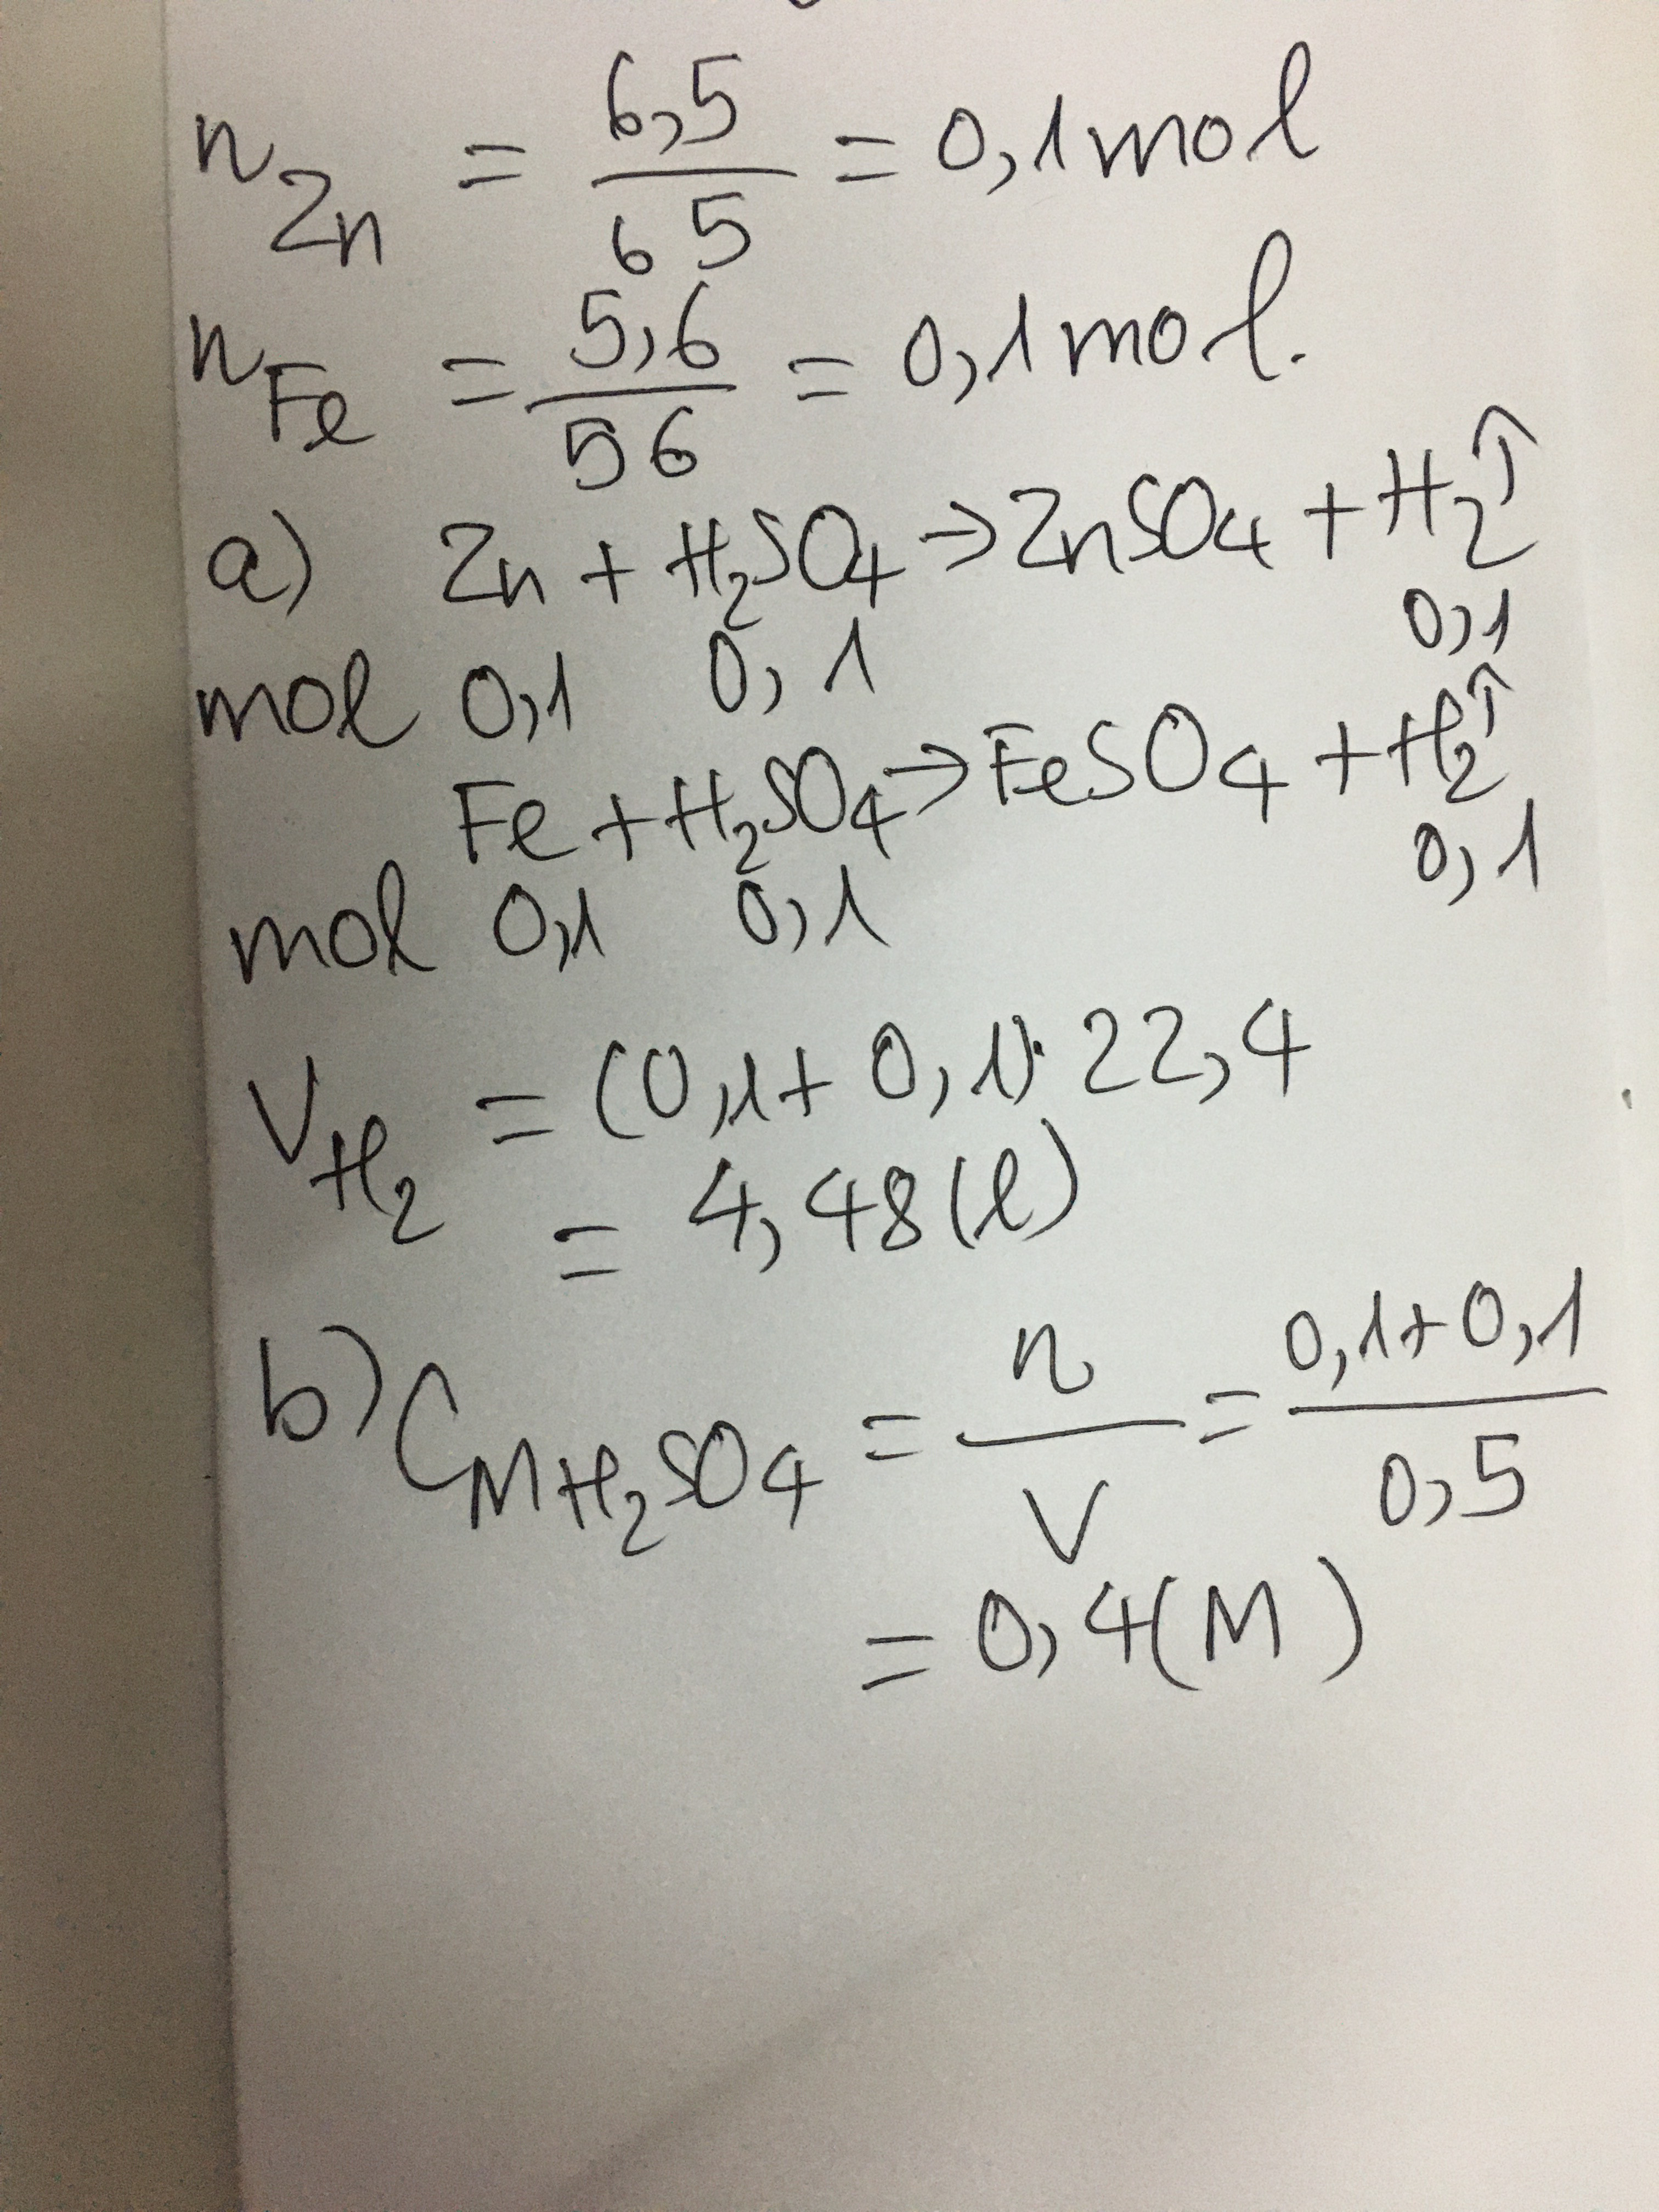 n_Zn = 6,5/65 = 0,1 mol
n_Fe = 5,6/56 = 0,1 mol.
a) Zn + H₂SO₄ → ZnSO₄ + H₂↑
mol 0,1 0,1 0,1
Fe + H₂SO₄ → FeSO₄ + H₂↑
mol 0,1 0,1 0,1
V_H₂ = (0,1 + 0,1).22,4
= 4,48 (l)
b) C_M H₂SO₄ = n/V = 0,1+0,1/0,5
= 0,4 (M)